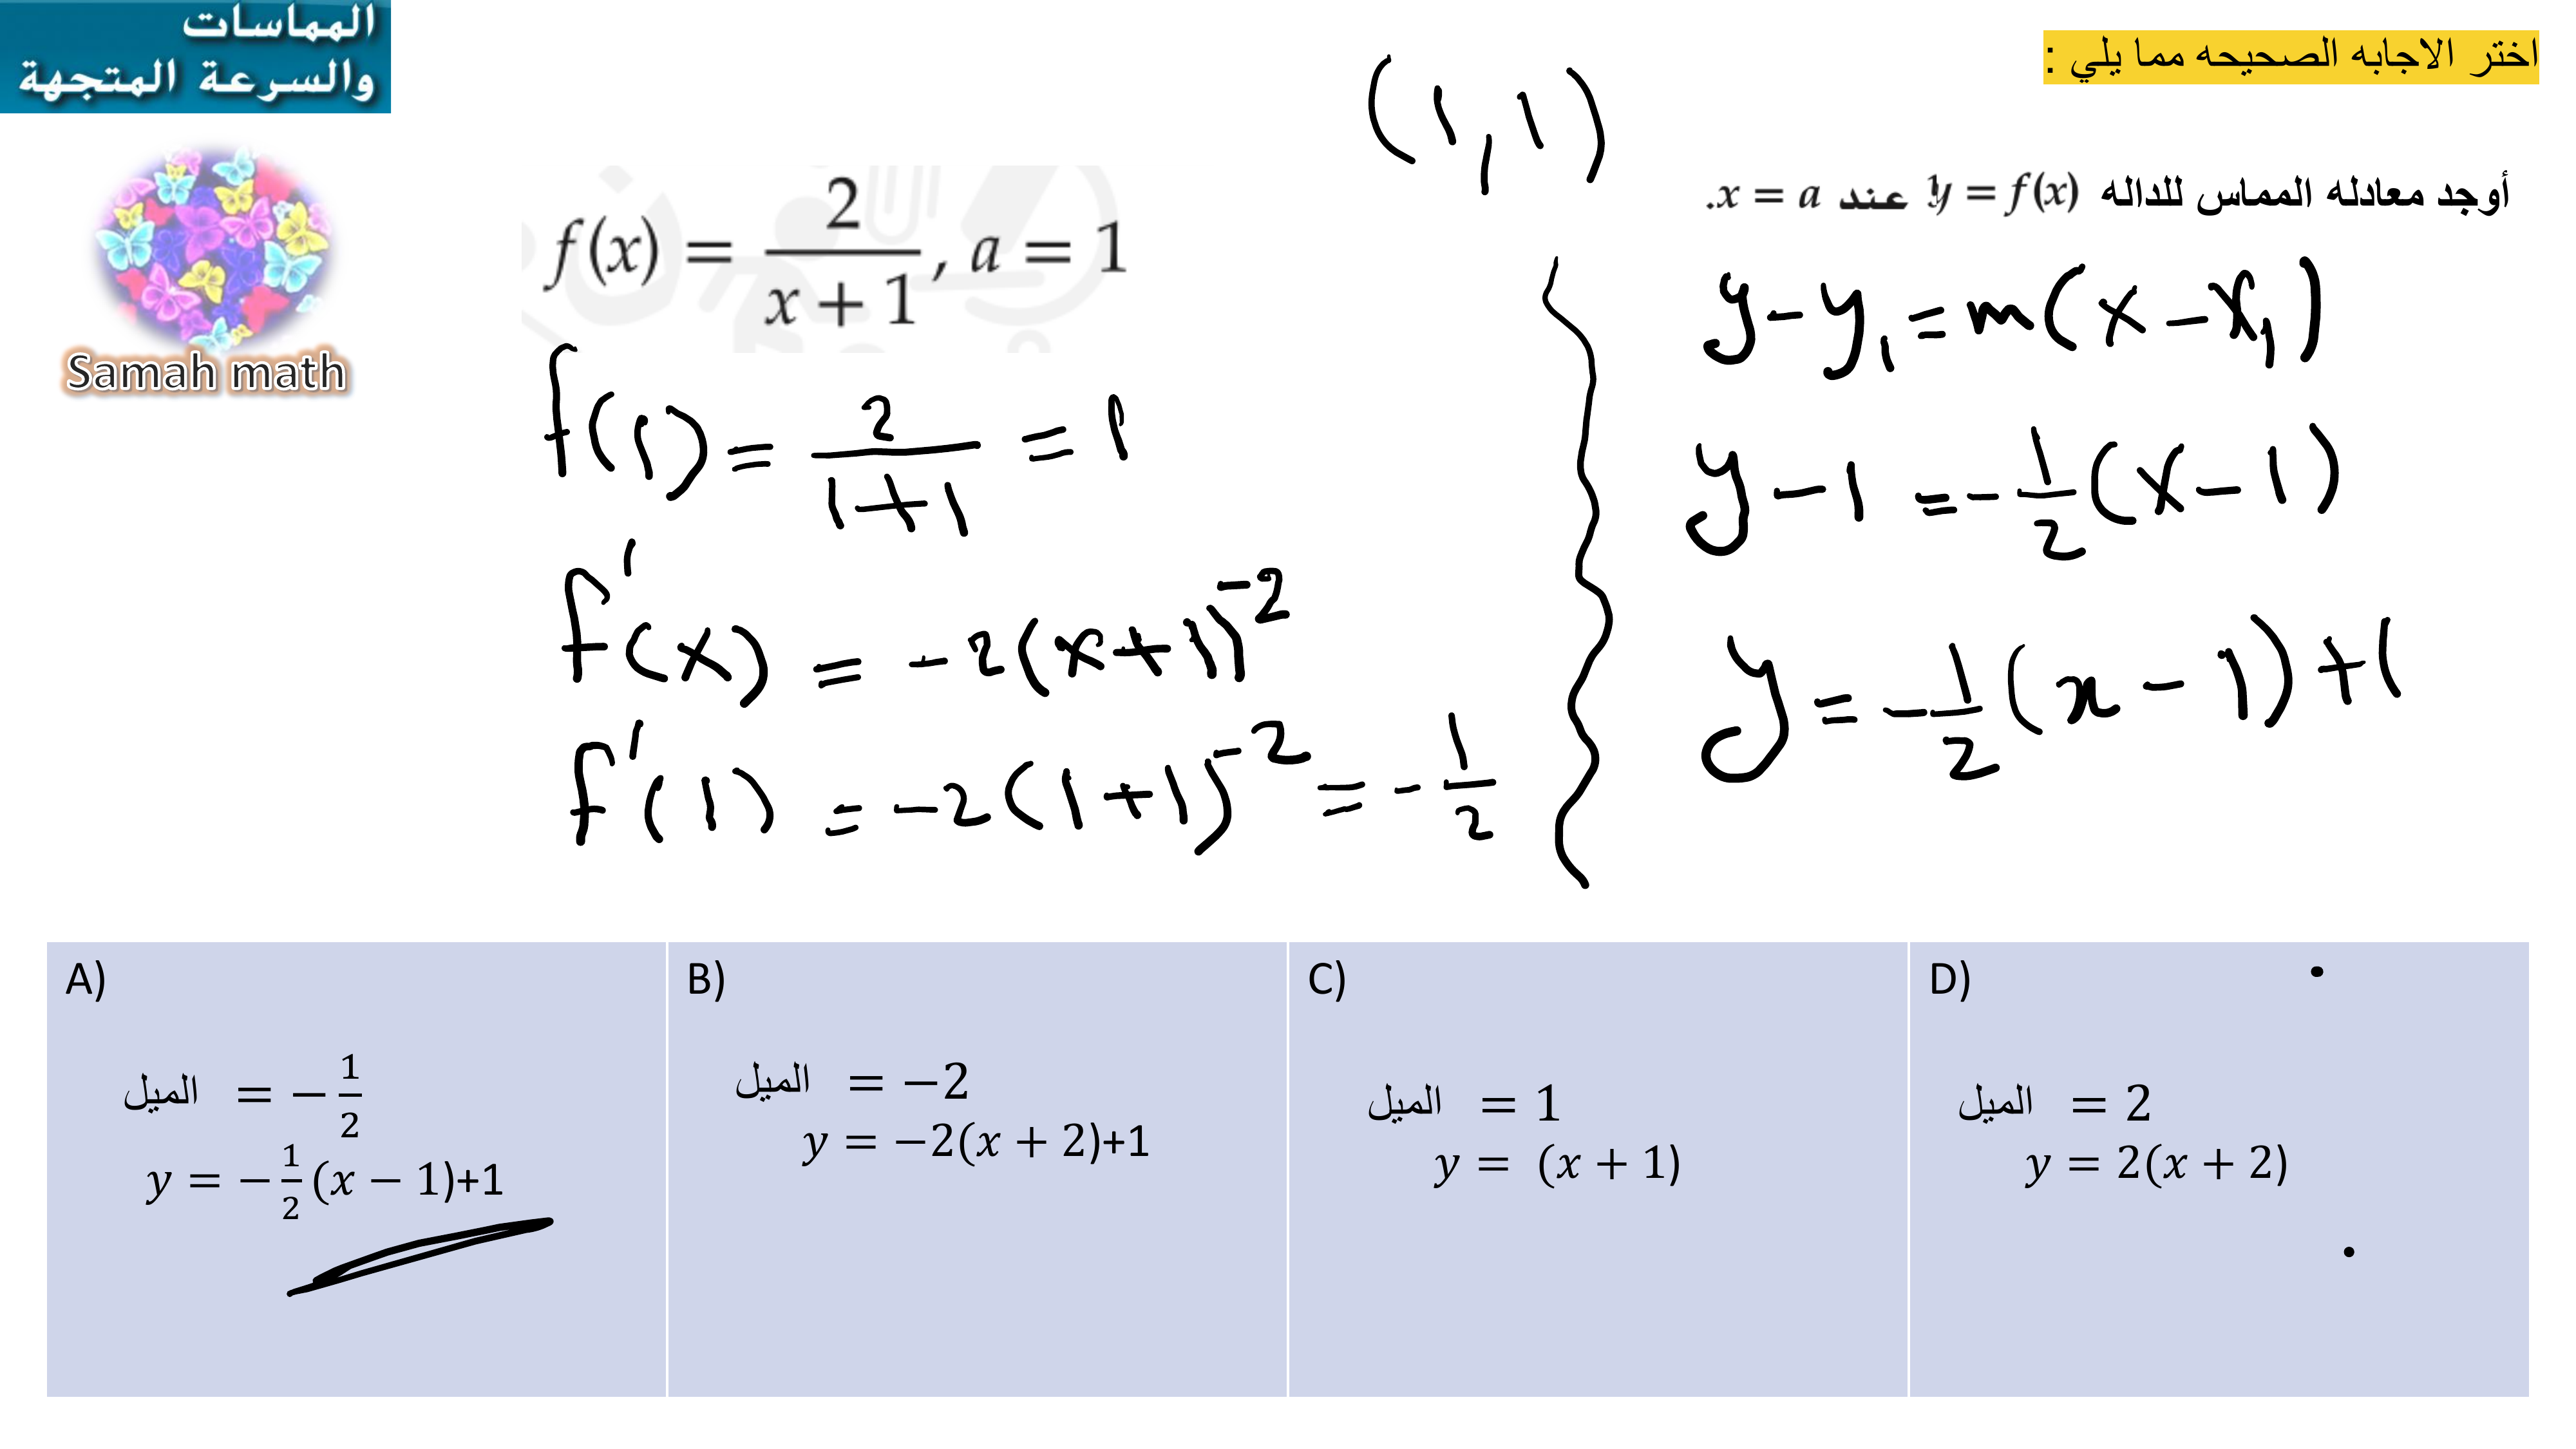 المماسات
والسرعة المتجهة
Samah math
اختر الاجابه الصحيحه مما يلي :
أوجد معادله المماس للداله y = f(x) عند x = a.
f(x) = 2/(x + 1), a = 1
(1,1)
f(1) = 2/(1+1) = 1
f'(x) = -2(x+1)^-2
f'(1) = -2(1+1)^-2 = -1/2
y - y₁ = m(x - x₁)
y - 1 = -1/2(x - 1)
y = -1/2(x - 1) + 1
A)
الميل = −1/2
y = −1/2(x − 1)+1
B)
الميل = −2
y = −2(x + 2)+1
C)
الميل = 1
y = (x + 1)
D)
الميل = 2
y = 2(x + 2)